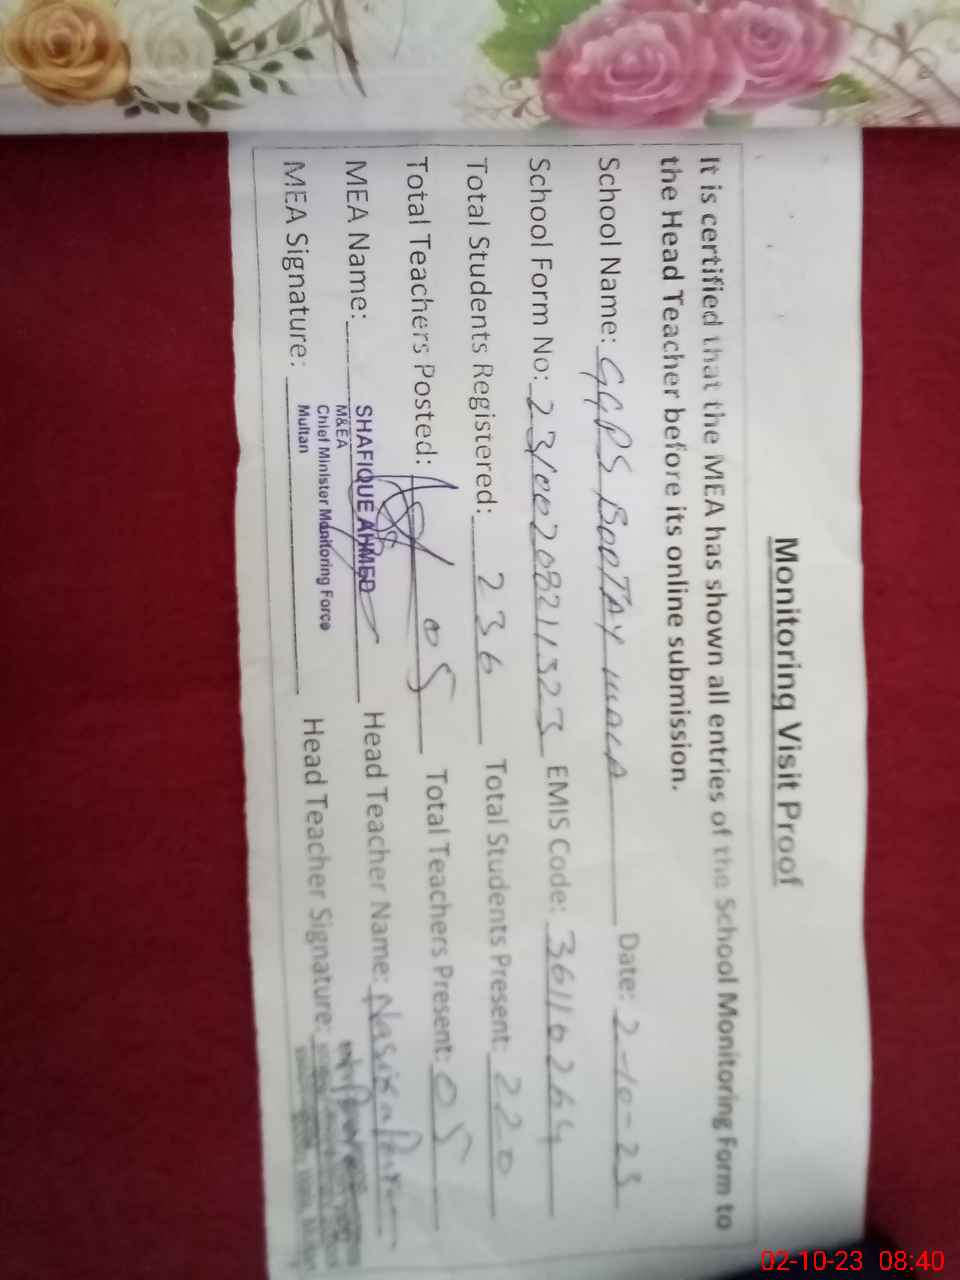 Monitoring Visit Proof
It is certified that the MEA has shown all entries of the School Monitoring Form to
the Head Teacher before its online submission.
School Name: GGPS BOOTAY WALA Date: 2-10-23
School Form No: 23100208211323 EMIS Code: 36110264
Total Students Registered: 236 Total Students Present: 220
Total Teachers Posted: 05 Total Teachers Present: 05
MEA Name: Head Teacher Name:
SHAFIQUE AHMED
M&EA
Chief Minister Monitoring Force
Multan
MEA Signature: Head Teacher Signature:
02-10-23 08:40